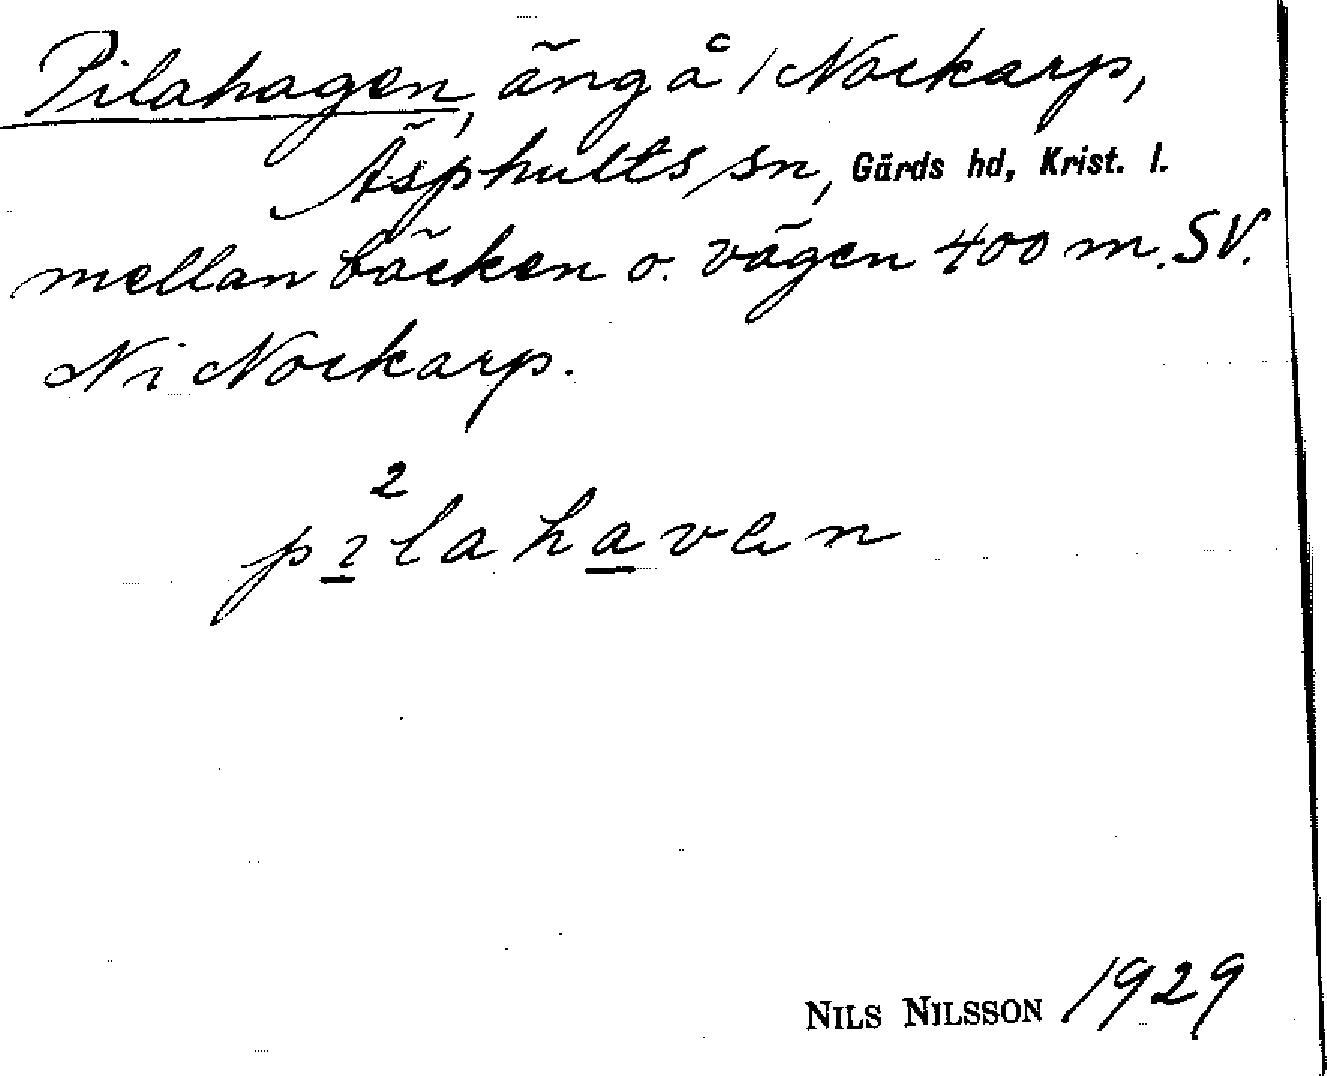 Pilahagen, äng å 1 Nockarp,
Äsphults sn, Gärds hd, Krist. l.
mellan bäcken o. vägen 400 m. SV.
N i Nockarp.
2
pılahavan
NILS NILSSON 1929